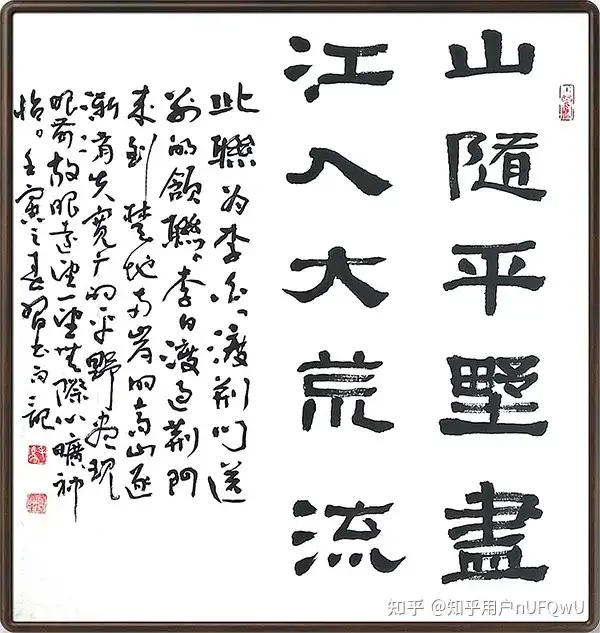 山隨平墅盡
江入大荒流
此聯为李白渡荆门送
别的頷聯李白渡过荆门
来到楚地两岸的高山逐
渐消失宽广的平野尽现
眼前放眼遠望一望無际心曠神
怡壬寅之春習书而記
知乎 @知乎用户nUFQwU